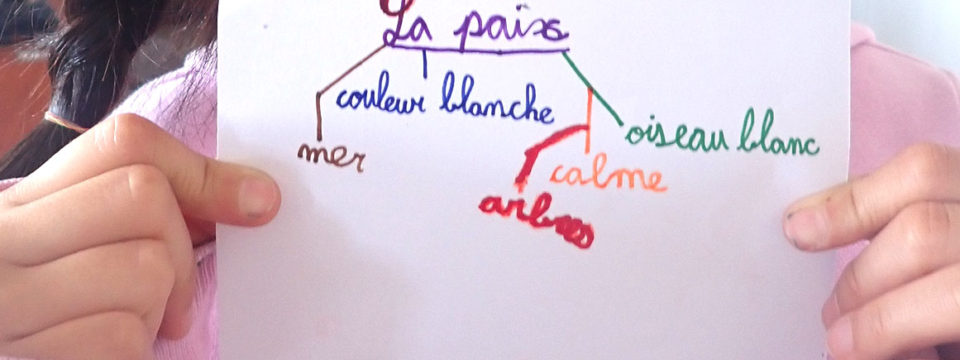 La paix
couleur blanche
oiseau blanc
mer
calme
arbres